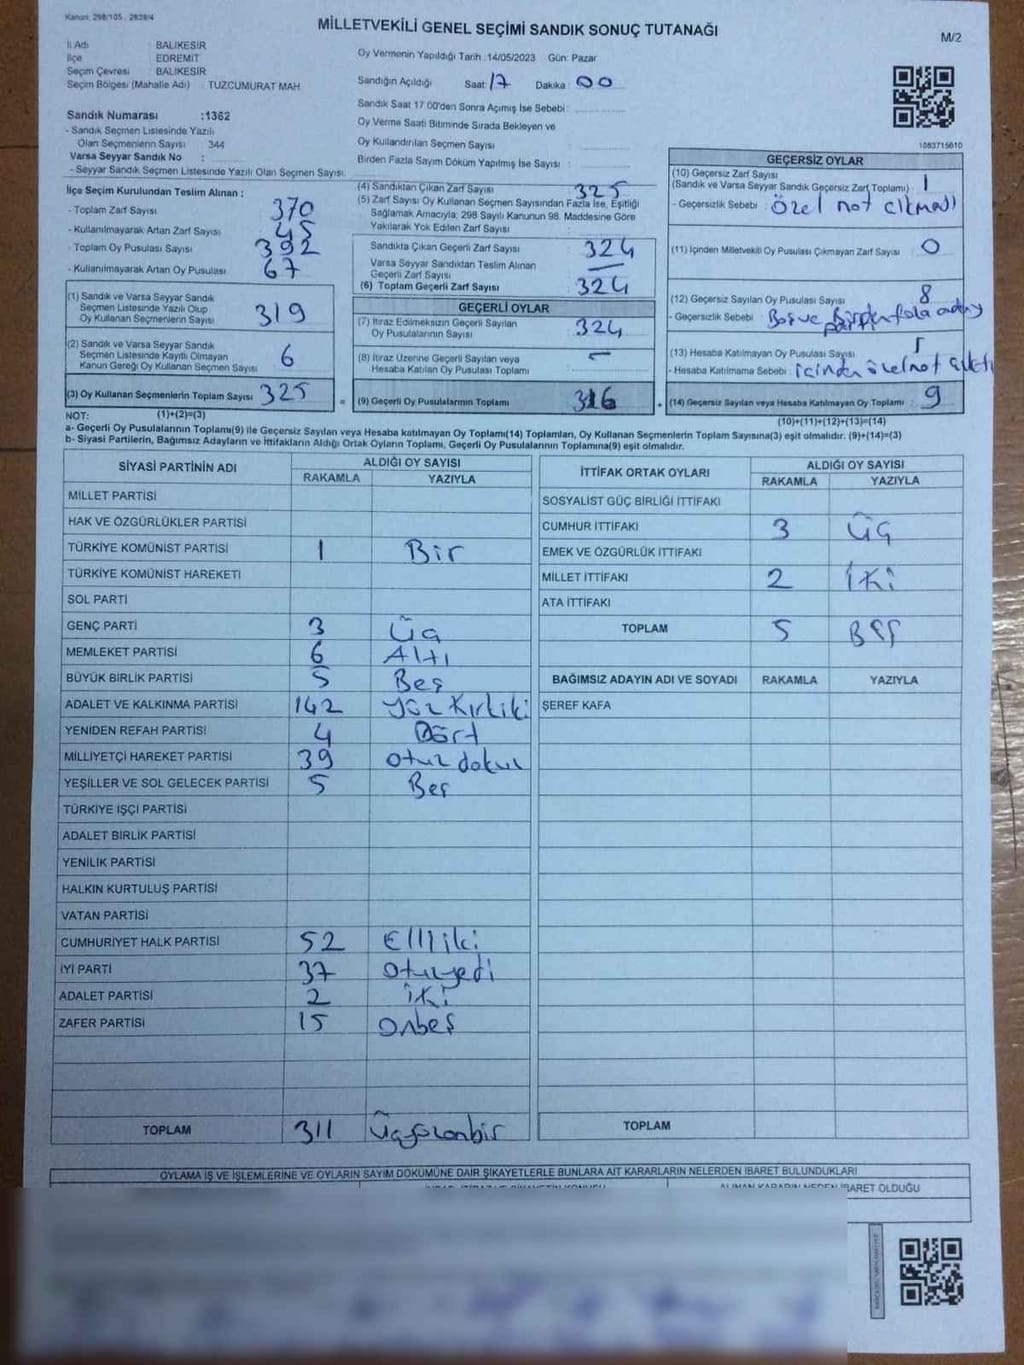 Kanun: 298/105 . 2839/4
MİLLETVEKİLİ GENEL SEÇİMİ SANDIK SONUÇ TUTANAĞI
M/2
İl Adı BALIKESİR
İlçe EDREMİT
Seçim Çevresi BALIKESİR
Seçim Bölgesi (Mahalle Adı) : TUZCUMURAT MAH.
Sandık Numarası :1362
- Sandık Seçmen Listesinde Yazılı
Olan Seçmenlerin Sayısı 344
Varsa Seyyar Sandık No :
- Seyyar Sandık Seçmen Listesinde Yazılı Olan Seçmen Sayısı:
Oy Vermenin Yapıldığı Tarih :14/05/2023 Gün: Pazar
Sandığın Açıldığı Saat: 17 Dakika: 00
Sandık Saat 17.00'den Sonra Açılmış İse Sebebi :
Oy Verme Saati Bitiminde Sırada Bekleyen ve
Oy Kullandırılan Seçmen Sayısı :
Birden Fazla Sayım Döküm Yapılmış İse Sayısı :
1083715610
İlçe Seçim Kurulundan Teslim Alınan :
- Toplam Zarf Sayısı 370
- Kullanılmayarak Artan Zarf Sayısı 45
- Toplam Oy Pusulası Sayısı 392
- Kullanılmayarak Artan Oy Pusulası 67
(1) Sandık ve Varsa Seyyar Sandık
Seçmen Listesinde Yazılı Olup
Oy Kullanan Seçmenlerin Sayısı 319
(2) Sandık ve Varsa Seyyar Sandık
Seçmen Listesinde Kayıtlı Olmayan
Kanun Gereği Oy Kullanan Seçmen Sayısı 6
(3) Oy Kullanan Seçmenlerin Toplam Sayısı 325
=
(4) Sandıktan Çıkan Zarf Sayısı 325
(5) Zarf Sayısı Oy Kullanan Seçmen Sayısından Fazla İse, Eşitliği
Sağlamak Amacıyla; 298 Sayılı Kanunun 98. Maddesine Göre
Yakılarak Yok Edilen Zarf Sayısı :
Sandıkta Çıkan Geçerli Zarf Sayısı 324
Varsa Seyyar Sandıktan Teslim Alınan
Geçerli Zarf Sayısı —
(6) Toplam Geçerli Zarf Sayısı 324
GEÇERLİ OYLAR
(7) İtiraz Edilmeksizin Geçerli Sayılan
Oy Pusulasının Sayısı 324
(8) İtiraz Üzerine Geçerli Sayılan veya
Hesaba Katılan Oy Pusulası Toplamı –
(9) Geçerli Oy Pusulalarının Toplamı 316
+
GEÇERSİZ OYLAR
(10) Geçersiz Zarf Sayısı
(Sandık ve Varsa Seyyar Sandık Geçersiz Zarf Toplamı) : 1
- Geçersizlik Sebebi : Özel not çıkmadı
(11) İçinden Milletvekili Oy Pusulası Çıkmayan Zarf Sayısı : 0
(12) Geçersiz Sayılan Oy Pusulası Sayısı 8
- Geçersizlik Sebebi : Boş ve Birden fala aday
(13) Hesaba Katılmayan Oy Pusulası Sayısı
- Hesaba Katılmama Sebebi : içinden özel not çıktı
(14) Geçersiz Sayılan veya Hesaba Katılmayan Oy Toplamı : 9
(10)+(11)+(12)+(13)=(14)
NOT: (1)+(2)=(3)
a- Geçerli Oy Pusulalarının Toplamı(9) ile Geçersiz Sayılan veya Hesaba katılmayan Oy Toplamı(14) Toplamları, Oy Kullanan Seçmenlerin Toplam Sayısına(3) eşit olmalıdır. (9)+(14)=(3)
b- Siyasi Partilerin, Bağımsız Adayların ve İttifakların Aldığı Ortak Oyların Toplamı, Geçerli Oy Pusulalarının Toplamına(9) eşit olmalıdır.
SİYASİ PARTİNİN ADI ALDIĞI OY SAYISI
RAKAMLA YAZIYLA
MİLLET PARTİSİ
HAK VE ÖZGÜRLÜKLER PARTİSİ
TÜRKİYE KOMÜNİST PARTİSİ 1 Bir
TÜRKİYE KOMÜNİST HAREKETİ
SOL PARTİ
GENÇ PARTİ 3 Üç
MEMLEKET PARTİSİ 6 Altı
BÜYÜK BİRLİK PARTİSİ 5 Beş
ADALET VE KALKINMA PARTİSİ 142 Yüz Kırkiki
YENİDEN REFAH PARTİSİ 4 Dört
MİLLİYETÇİ HAREKET PARTİSİ 39 otuz dokuz
YEŞİLLER VE SOL GELECEK PARTİSİ 5 Beş
TÜRKİYE İŞÇİ PARTİSİ
ADALET BİRLİK PARTİSİ
YENİLİK PARTİSİ
HALKIN KURTULUŞ PARTİSİ
VATAN PARTİSİ
CUMHURİYET HALK PARTİSİ 52 Elliiki
İYİ PARTİ 37 otuzyedi
ADALET PARTİSİ 2 iki
ZAFER PARTİSİ 15 onbeş
TOPLAM 311 üçyüzonbir
İTTİFAK ORTAK OYLARI ALDIĞI OY SAYISI
RAKAMLA YAZIYLA
SOSYALİST GÜÇ BİRLİĞİ İTTİFAKI
CUMHUR İTTİFAKI 3 Üç
EMEK VE ÖZGÜRLÜK İTTİFAKI
MİLLET İTTİFAKI 2 İki
ATA İTTİFAKI
TOPLAM 5 Beş
BAĞIMSIZ ADAYIN ADI VE SOYADI RAKAMLA YAZIYLA
ŞEREF KAFA
TOPLAM
OYLAMA İŞ VE İŞLEMLERİNE VE OYLARIN SAYIM DÖKÜMÜNE DAİR ŞİKAYETLERLE BUNLARA AİT KARARLARIN NELERDEN İBARET BULUNDUKLARI
ALINAN KARARIN NEDEN İBARET OLDUĞU